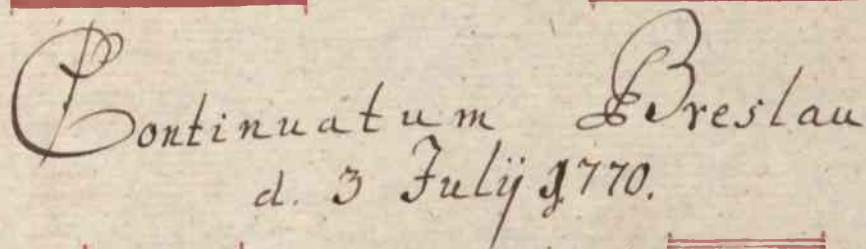 Continuatum Breslau
d. 3 Julij 1770.